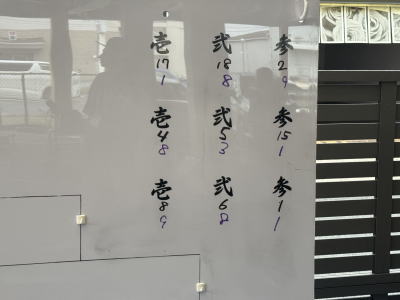 参
2
9
弐
18
8
壱
17
1
参
15
1
弐
5
3
壱
4
8
参
1
1
弐
6
8
壱
8
9